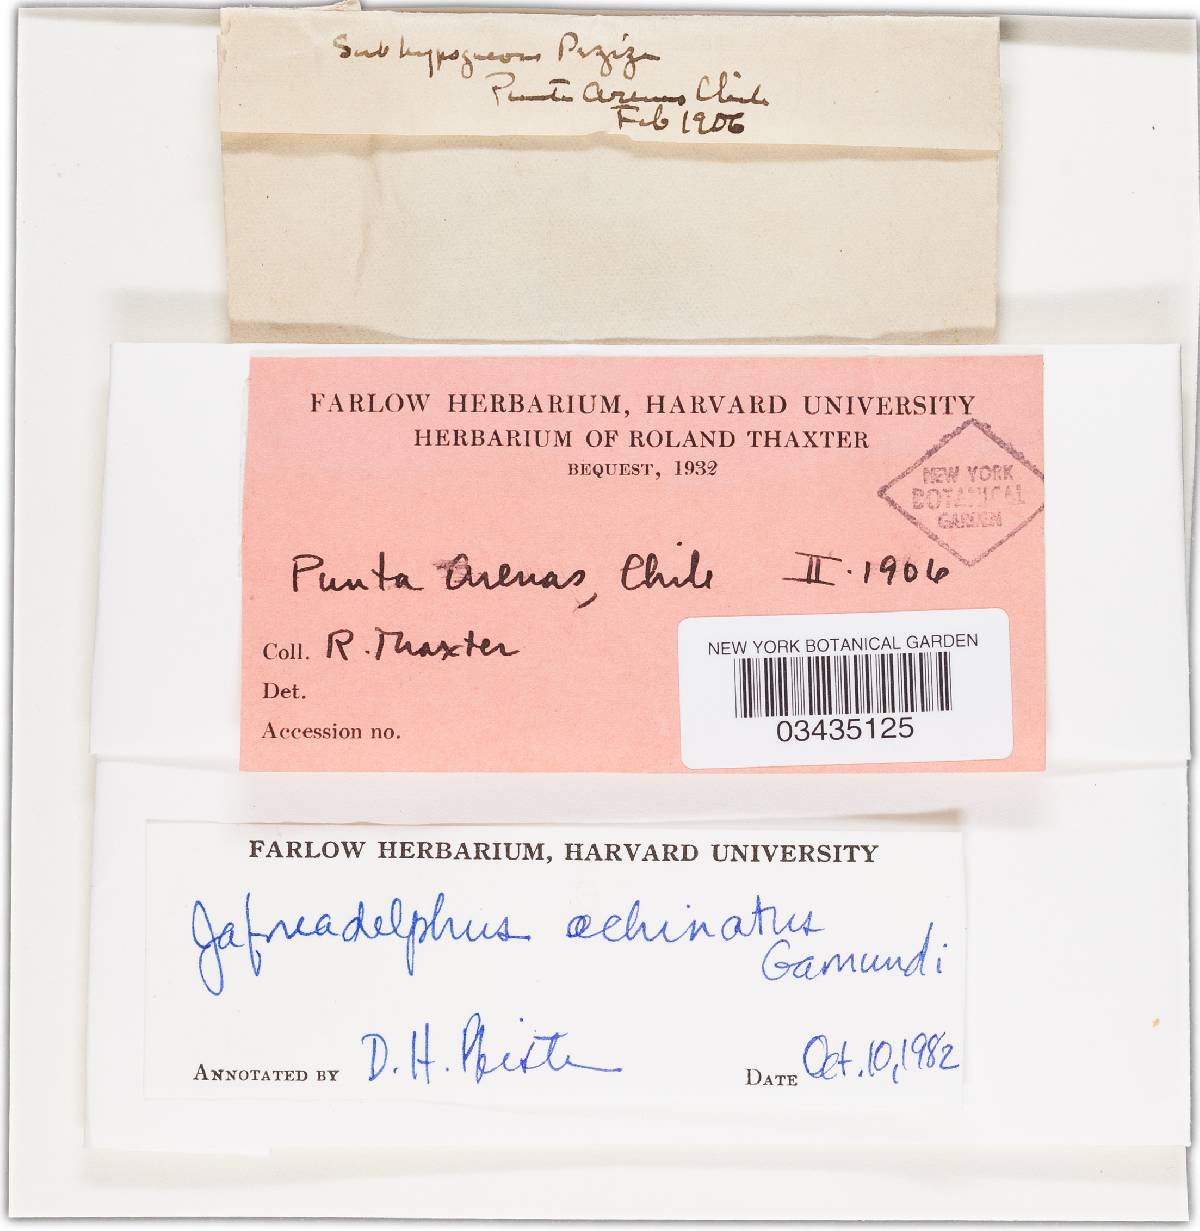 Subhypogneous Peziza
Punta Arenas Chile
Feb 1906
FARLOW HERBARIUM, HARVARD UNIVERSITY
HERBARIUM OF ROLAND THAXTER
BEQUEST, 1932
NEW YORK
BOTANICAL
GARDEN
Punta Arenas, Chile II. 1906
Coll. R. Thaxter
Det.
Accession no.
NEW YORK BOTANICAL GARDEN
03435125
FARLOW HERBARIUM, HARVARD UNIVERSITY
Jafneadelphus echinatus
Gamundi
ANNOTATED BY D. H. Pfister
DATE Oct. 10, 1982